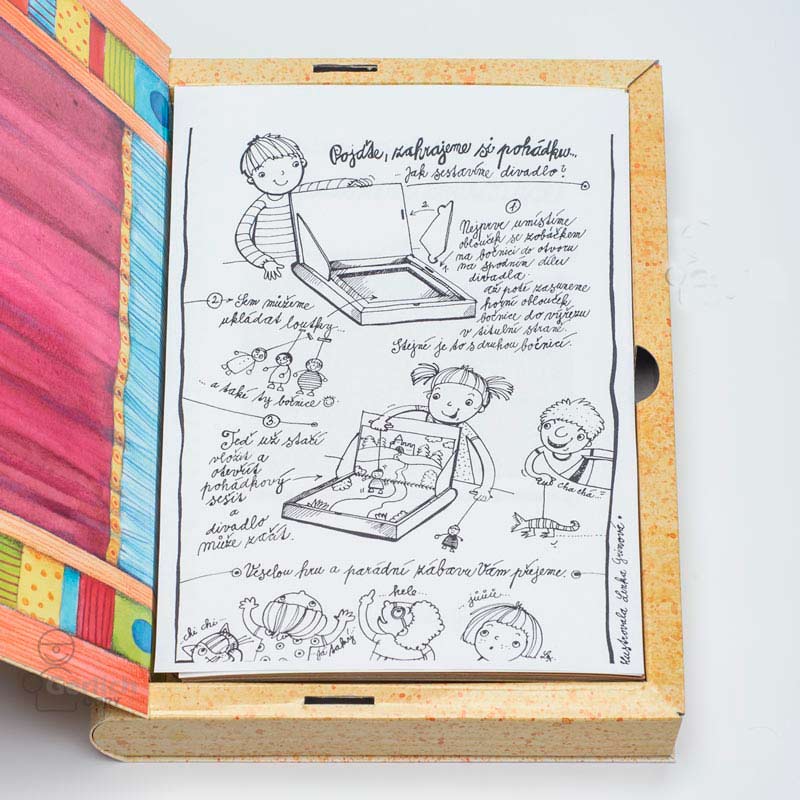 Pojďte, zahrajeme si pohádku...
...jak sestavíme divadlo?
1
Nejprve umístíme
oblouček se zobáčkem
na bočnici do otvoru
na spodním dílu
divadla.
až poté zasuneme
horní oblouček
bočnice do výřezu
v titulní straně.
Stejné je to s druhou bočnicí.
2.
1.
2 Sem můžeme
ukládat loutky...
...a také ty bočnice
3
Teď už stačí
vložit a
otevřít
pohádkový
sešit
a
divadlo
může začít.
cha chá
Veselou hru a parádní zábavu Vám přejeme.
chi chi...
já taky
hele...
jůůů
ilustrovala Lenka Grünová